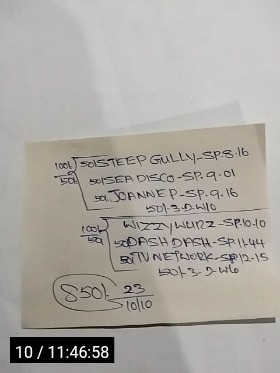 100/- 50/STEEP GULLY-SP.8.16
50/- 50/SEA DISCO-SP.9.01
50/JOANNE P-SP.9.16
50/-3.D.W/O
100/- WIZZY WURZ-SP.10.10
50/- 50/DASH DASH-SP.11.44
50/TV NETWORK-SP12-15
50/-3.D-W/o
850/- 23
10/10
10 / 11:46:58